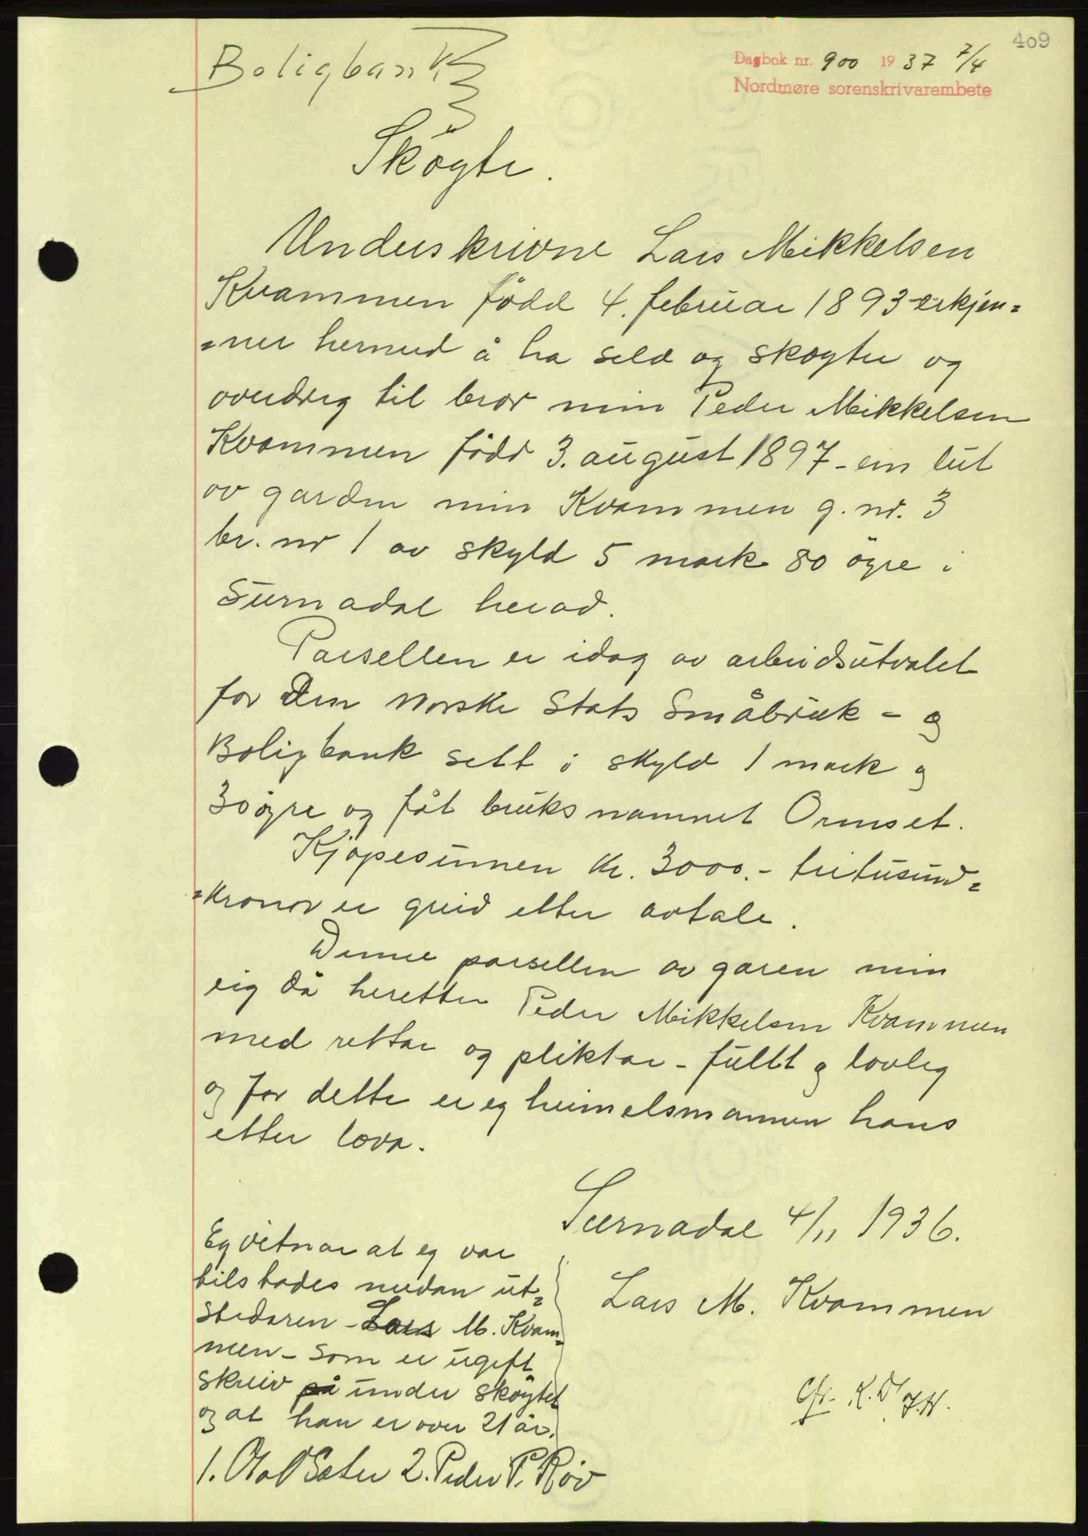 409
Boligbank
Dagbok nr. 900 1937 7/4
Nordmøre sorenskrivarembete
Sköyte.
Underskrivne Lars Mikkelsen
Kvammen född 4. februar 1893 erkjen=
=ner hermed å ha seld og skøyter og
overdreg til bror min Peder Mikkelsen
Kvammen född 3. august 1897 - ein lut
av garden min Kvammen g. nr. 3
br. nr 1 av skyld 5 mark 80 öyre i
Surnadal herad.
Parsellen er idag av arbeidsutvalet
for Den Norske Stats Småbruk - og
Boligbank sett i skyld 1 mark og
30 öyre og fåt bruksnamnet Ormset.
Kjöpesumen kr. 3000.- tritusund=
=kronor er greid etter avtale.
Denne parsellen av garen min
eig då heretter Peder Mikkelsen Kvammen
med rettar og pliktar - fullt og lovleg
og for dette er eg heimelsmannen hans
etter lova.
Surnadal 4/11 1936.
Lars M. Kvammen
Eg vitnar at eg var
tilstades medan ut=
stedaren - Lars M. Kvam=
men - som er ugift
skreiv på under sköytet
og at han er over 21 år.
1. Olaf Sæter 2. Peder P. Röv
Gfr. K. D. J.H.